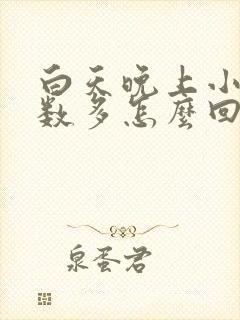 白天晚上小
数多怎麼回
泉蛋君